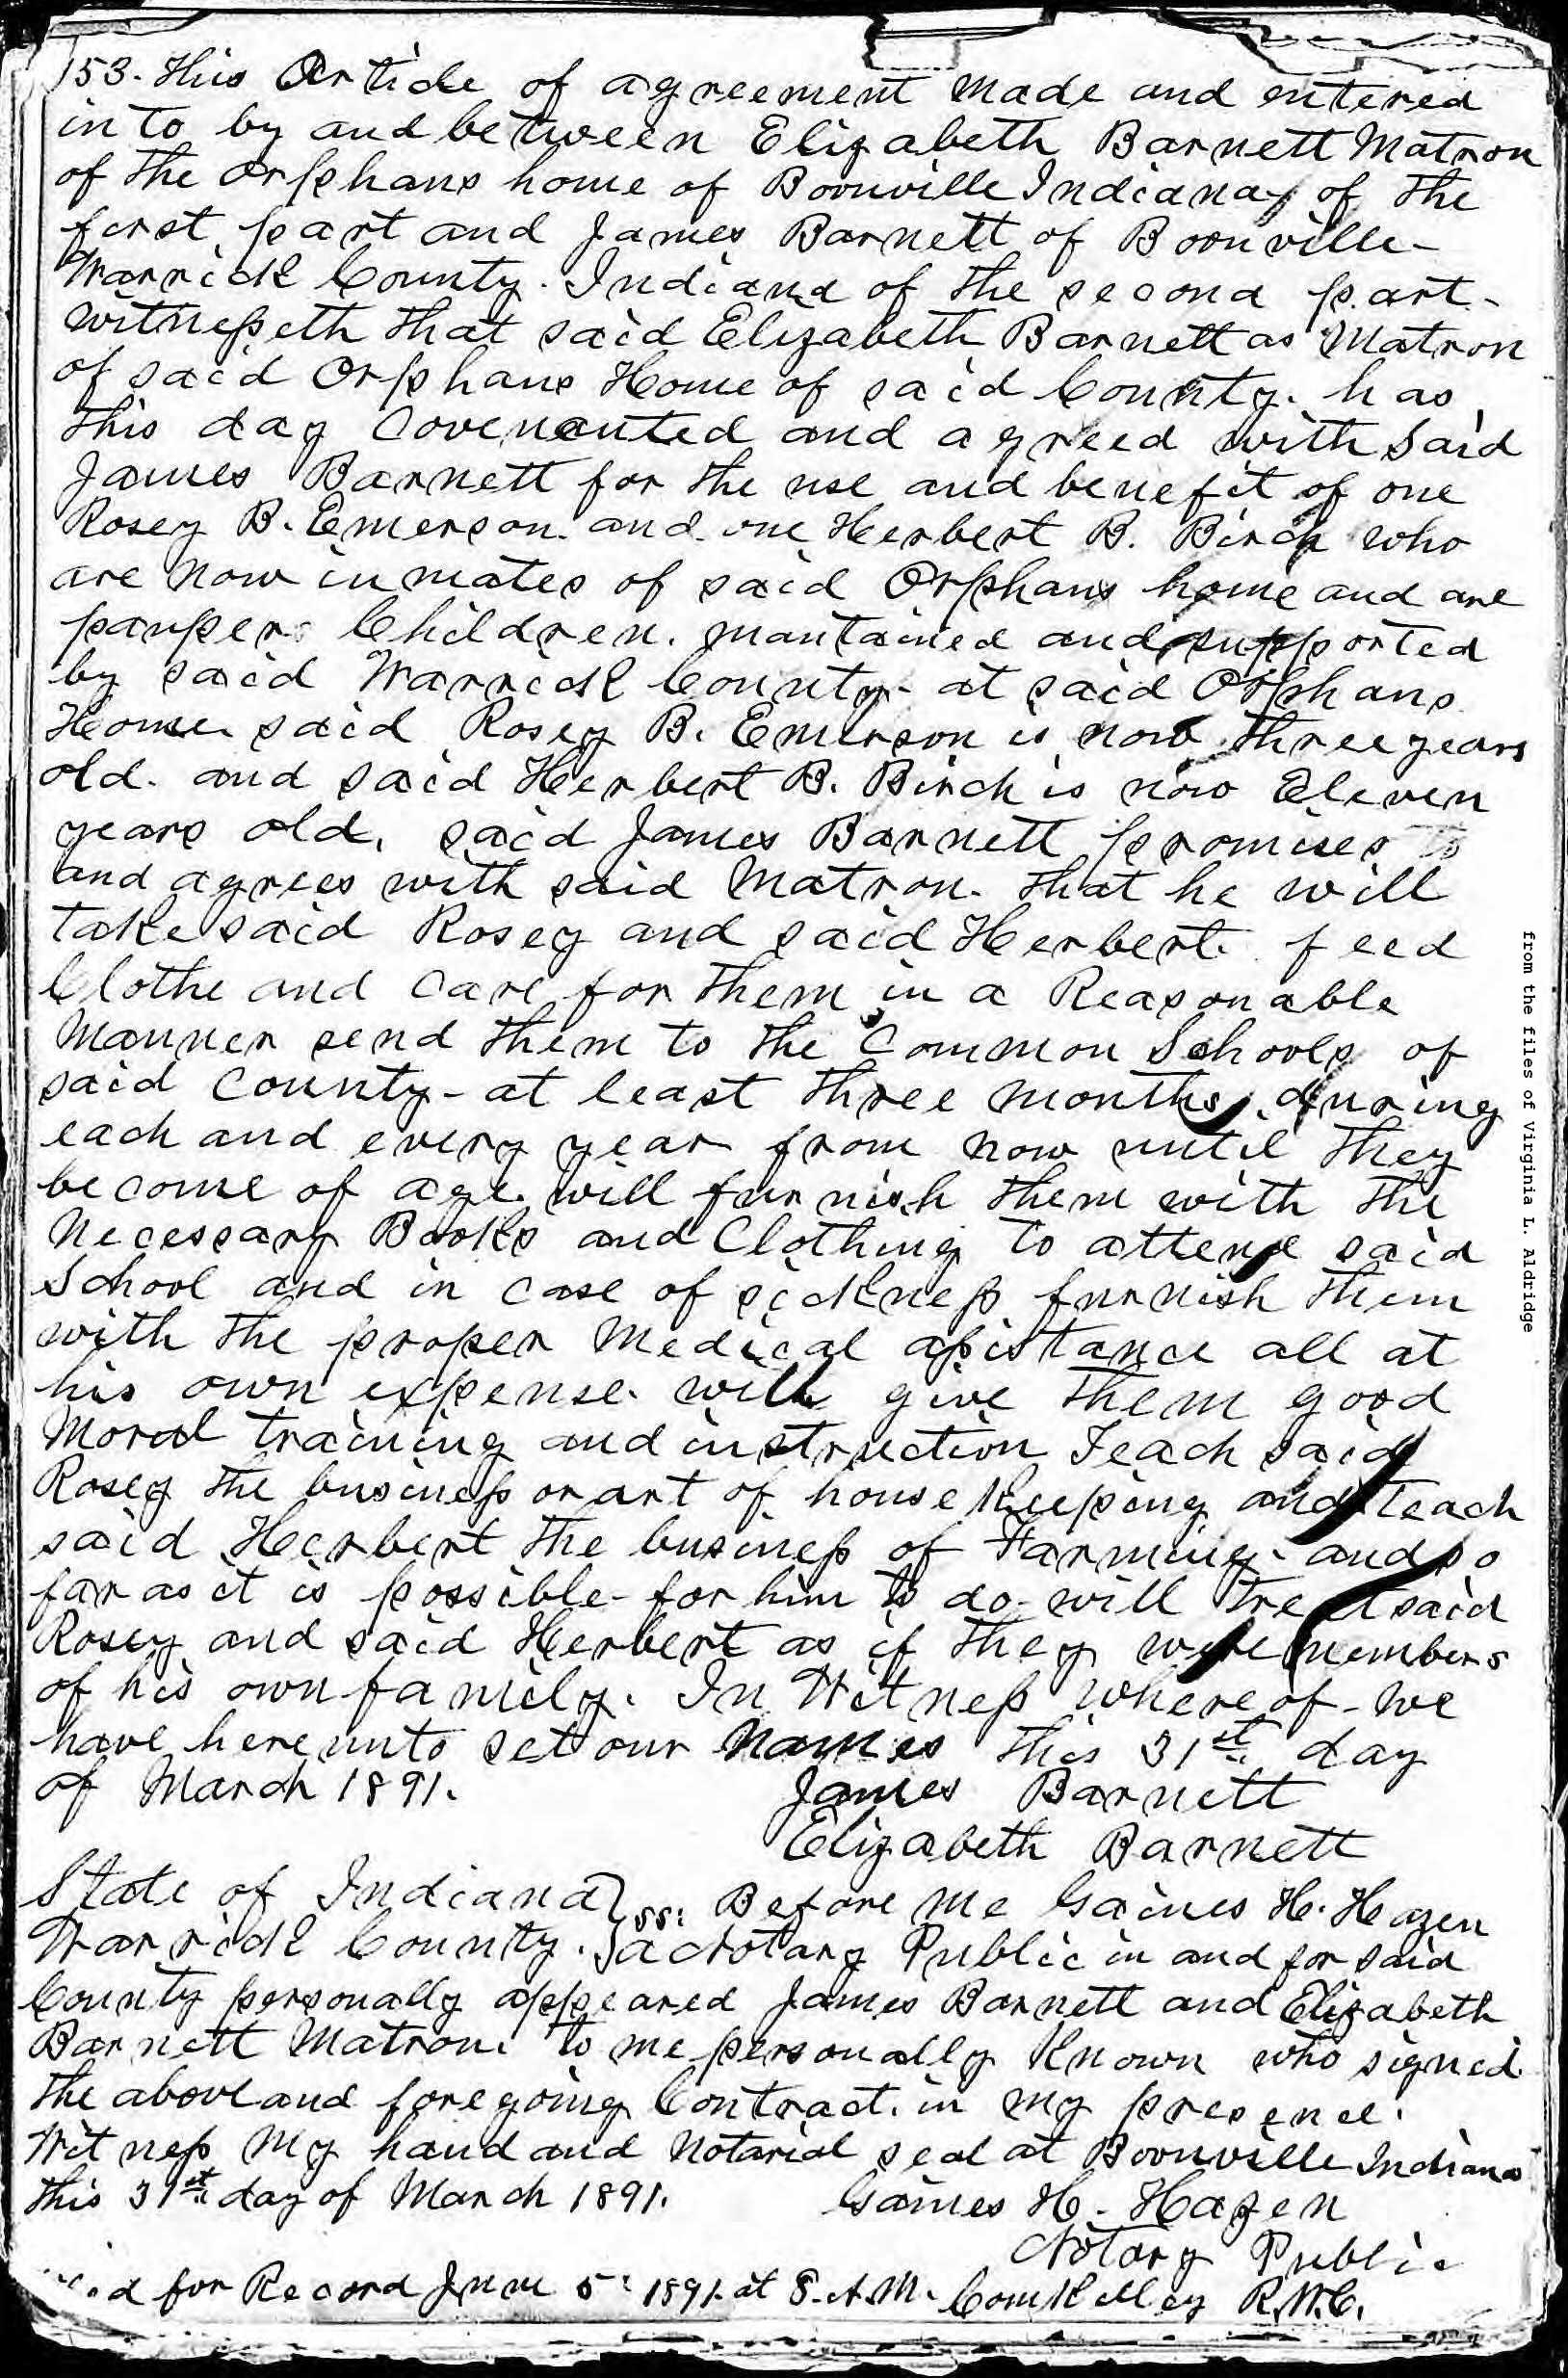 153. This Article of agreement Made and entered
in to by and between Elizabeth Barnett Matron
of the Orphans home of Boonville Indiana, of the
first part and James Barnett of Boonville-
Warrick County. Indiana of the second part-
witnesseth that said Elizabeth Barnett as Matron
of said Orphans Home of said County. has
this day Covenanted and agreed with Said
James Barnett for the use and benefit of one
Rosey B. Emerson. and one Herbert B. Birch who
are Now inmates of said Orphans home and are
pauper Children. mantained and supported
by said Warrick County- at said Orphans
Home. said Rosey B. Emerson is now three years
old. and said Herbert B. Birch is now Eleven
years old. said James Barnett promises to
and agrees with said Matron. that he will
take said Rosey and said Herbert. feed
Clothe and Care for them in a Reasonable
Manner send them to the Common Schools of
said County- at least three months, during
each and every year from now until they
become of age. will furnish them with the
Necessary Books and Clothing to attend said
School and in case of sickness furnish them
with the proper Medical assistance all at
his own expense. will give them good
Moral training and instruction Teach said
Rosey the business or art of house Keeping and teach
said Herbert the business of Farming- and so
far as it is possible- for him to do- will treat said
Rosey and said Herbert as if they were members
of his own family. In Witness whereof- we
have hereunto set our Names this 31st day
of March 1891.
James Barnett
Elizabeth Barnett
State of Indiana } ss: Before Me Gaines H. Hazen
Warrick County. } a Notary Public in and for said
County personally appeared James Barnett and Elizabeth
Barnett Matron. to me personally Known who signed
the above and foregoing Contract. in my presence.
Witness My hand and Notarial seal at Boonville Indiana
this 31st day of March 1891.
Gaines H. Hazen
Notary Public
for Record June 5: 1891. at 8. A.M. Com Kelley R.W.C.
from the files of Virginia L. Aldridge